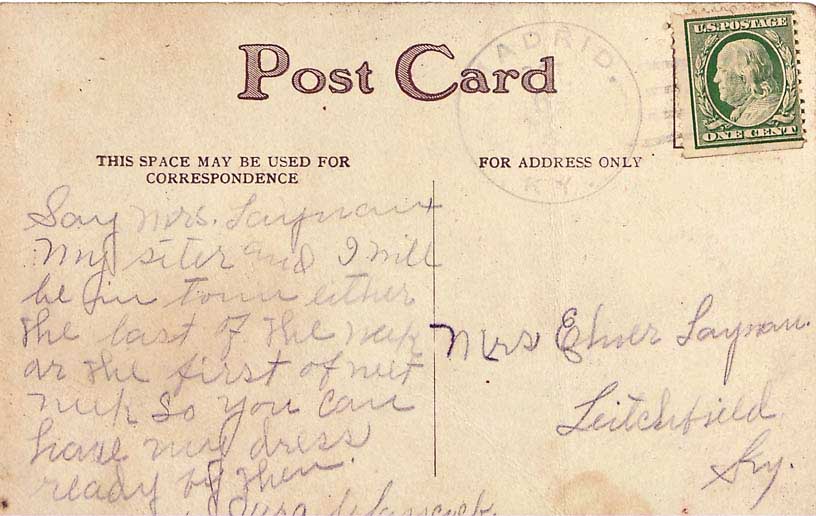 Post Card
MADRID.
KY.
U.S. POSTAGE
ONE CENT
THIS SPACE MAY BE USED FOR
CORRESPONDENCE
FOR ADDRESS ONLY
Say Mrs. Layman
My siter and I will
be in town either
the last of the week
or the first of next
week so you can
have my dress
ready by then.
Mrs Elmer Layman.
Leitchfield
Ky.